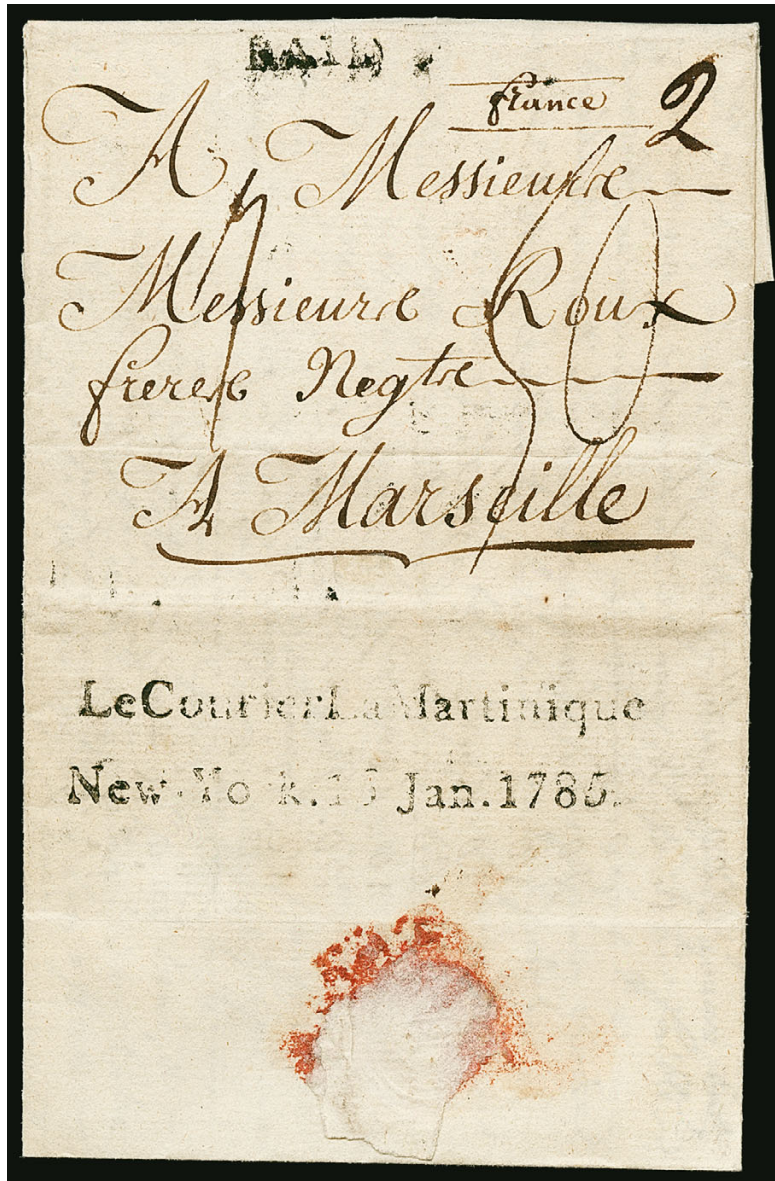 PAID
france 2
A Messieurs
Messieurs Roux
freres Negts
A Marseille
Le Courier La Martinique
New-York. Jan. 1785.